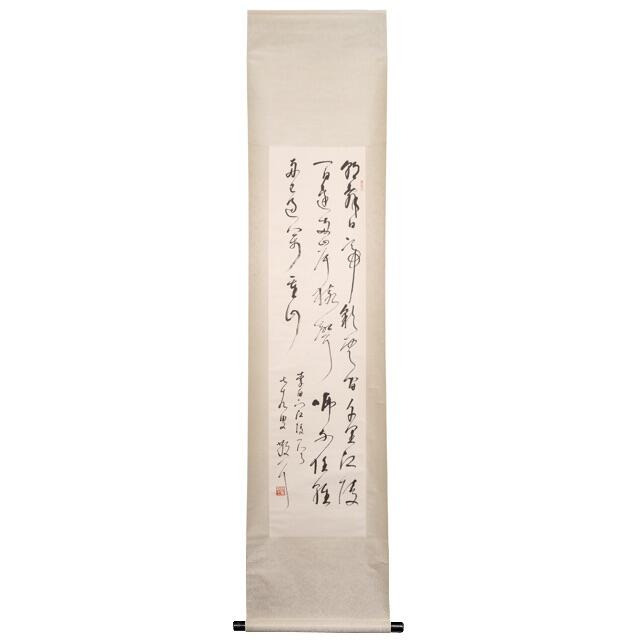 朝辭白帝彩雲間千里江陵
一日還兩岸猿聲啼不住輕
舟已過萬重山
李白下江陵一首
七十九叟